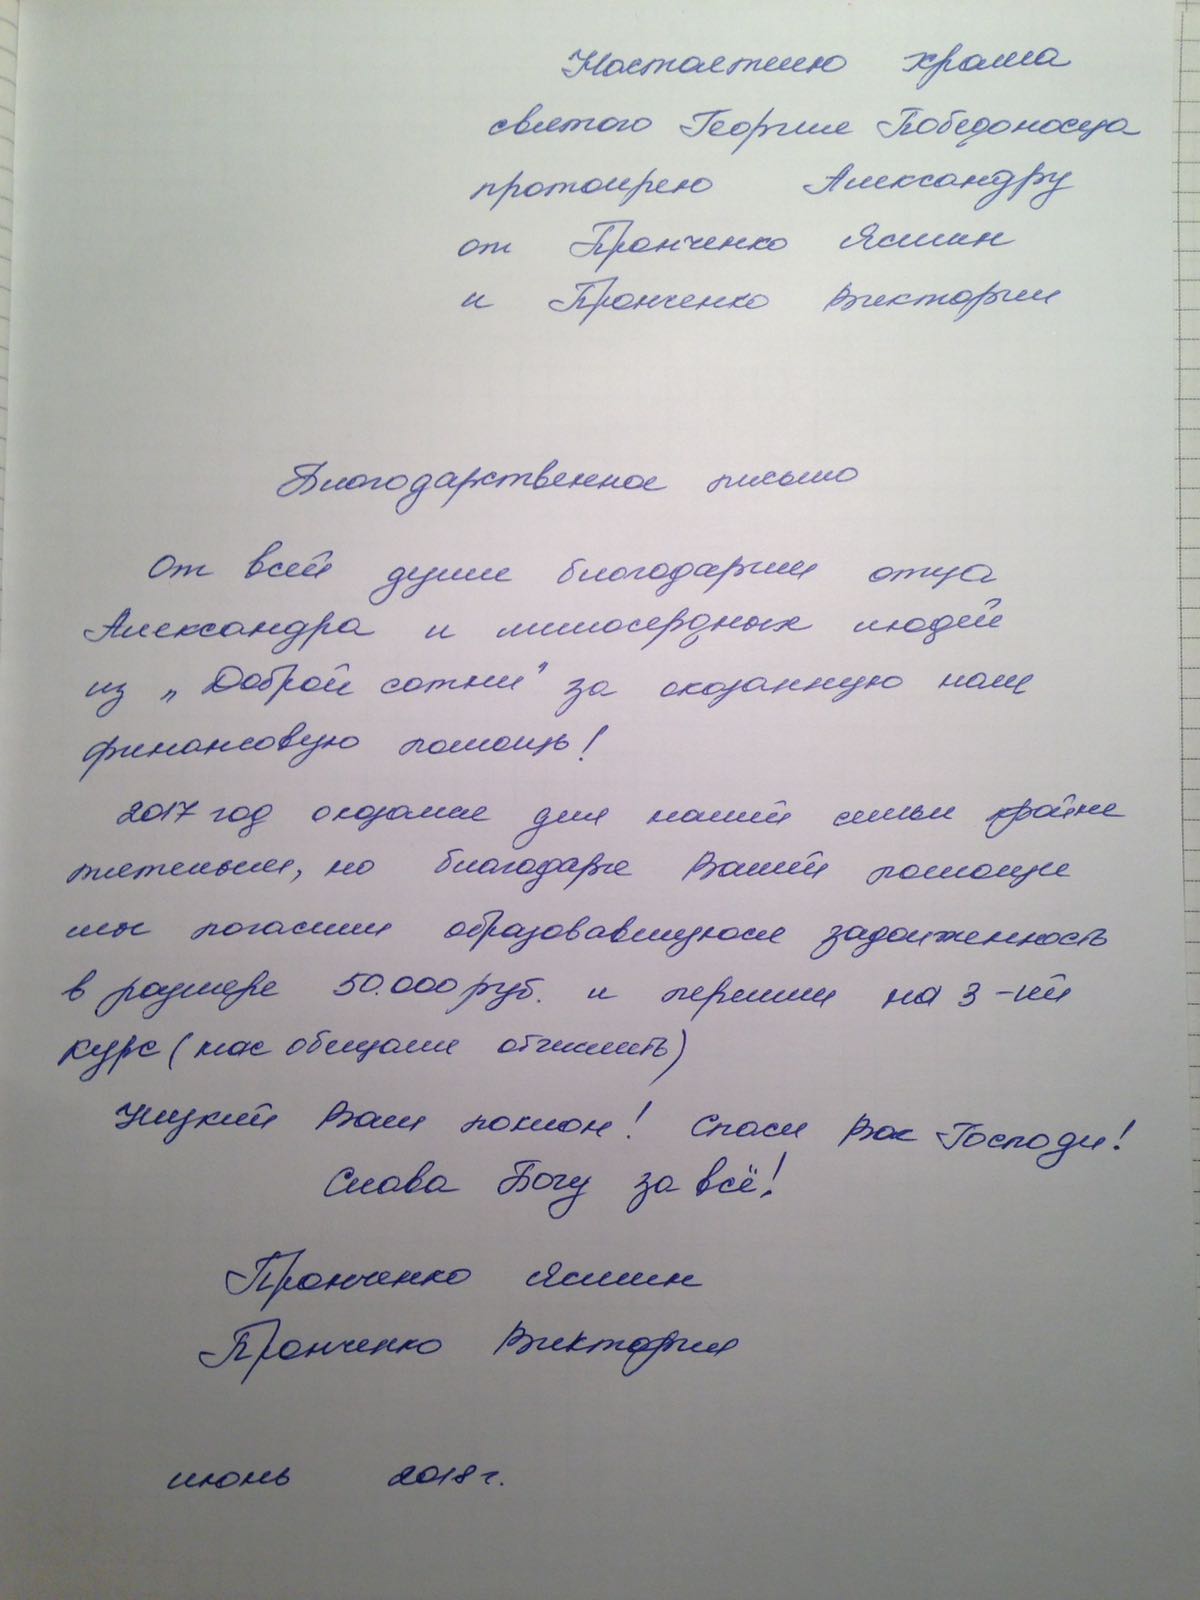 Настоятелю храма
святого Георгия Победоносца
протоиерею Александру
от Пронченко Ясмин
и Пронченко Виктории
Благодарственное письмо
От всей души благодарим отца
Александра и милосердных людей
из „Доброй сотни" за оказанную нам
финансовую помощь!
2017 год оказался для нашей семьи крайне
тяжелым, но благодаря Вашей помощи
мы погасили образовавшуюся задолженность
в размере 50.000 руб. и перешли на 3-ий
курс (нас обещали отчислить)
Низкий Вам поклон! Спаси Вас Господи!
Слава Богу за всё!
Пронченко Ясмин
Пронченко Виктория
июнь 2018 г.